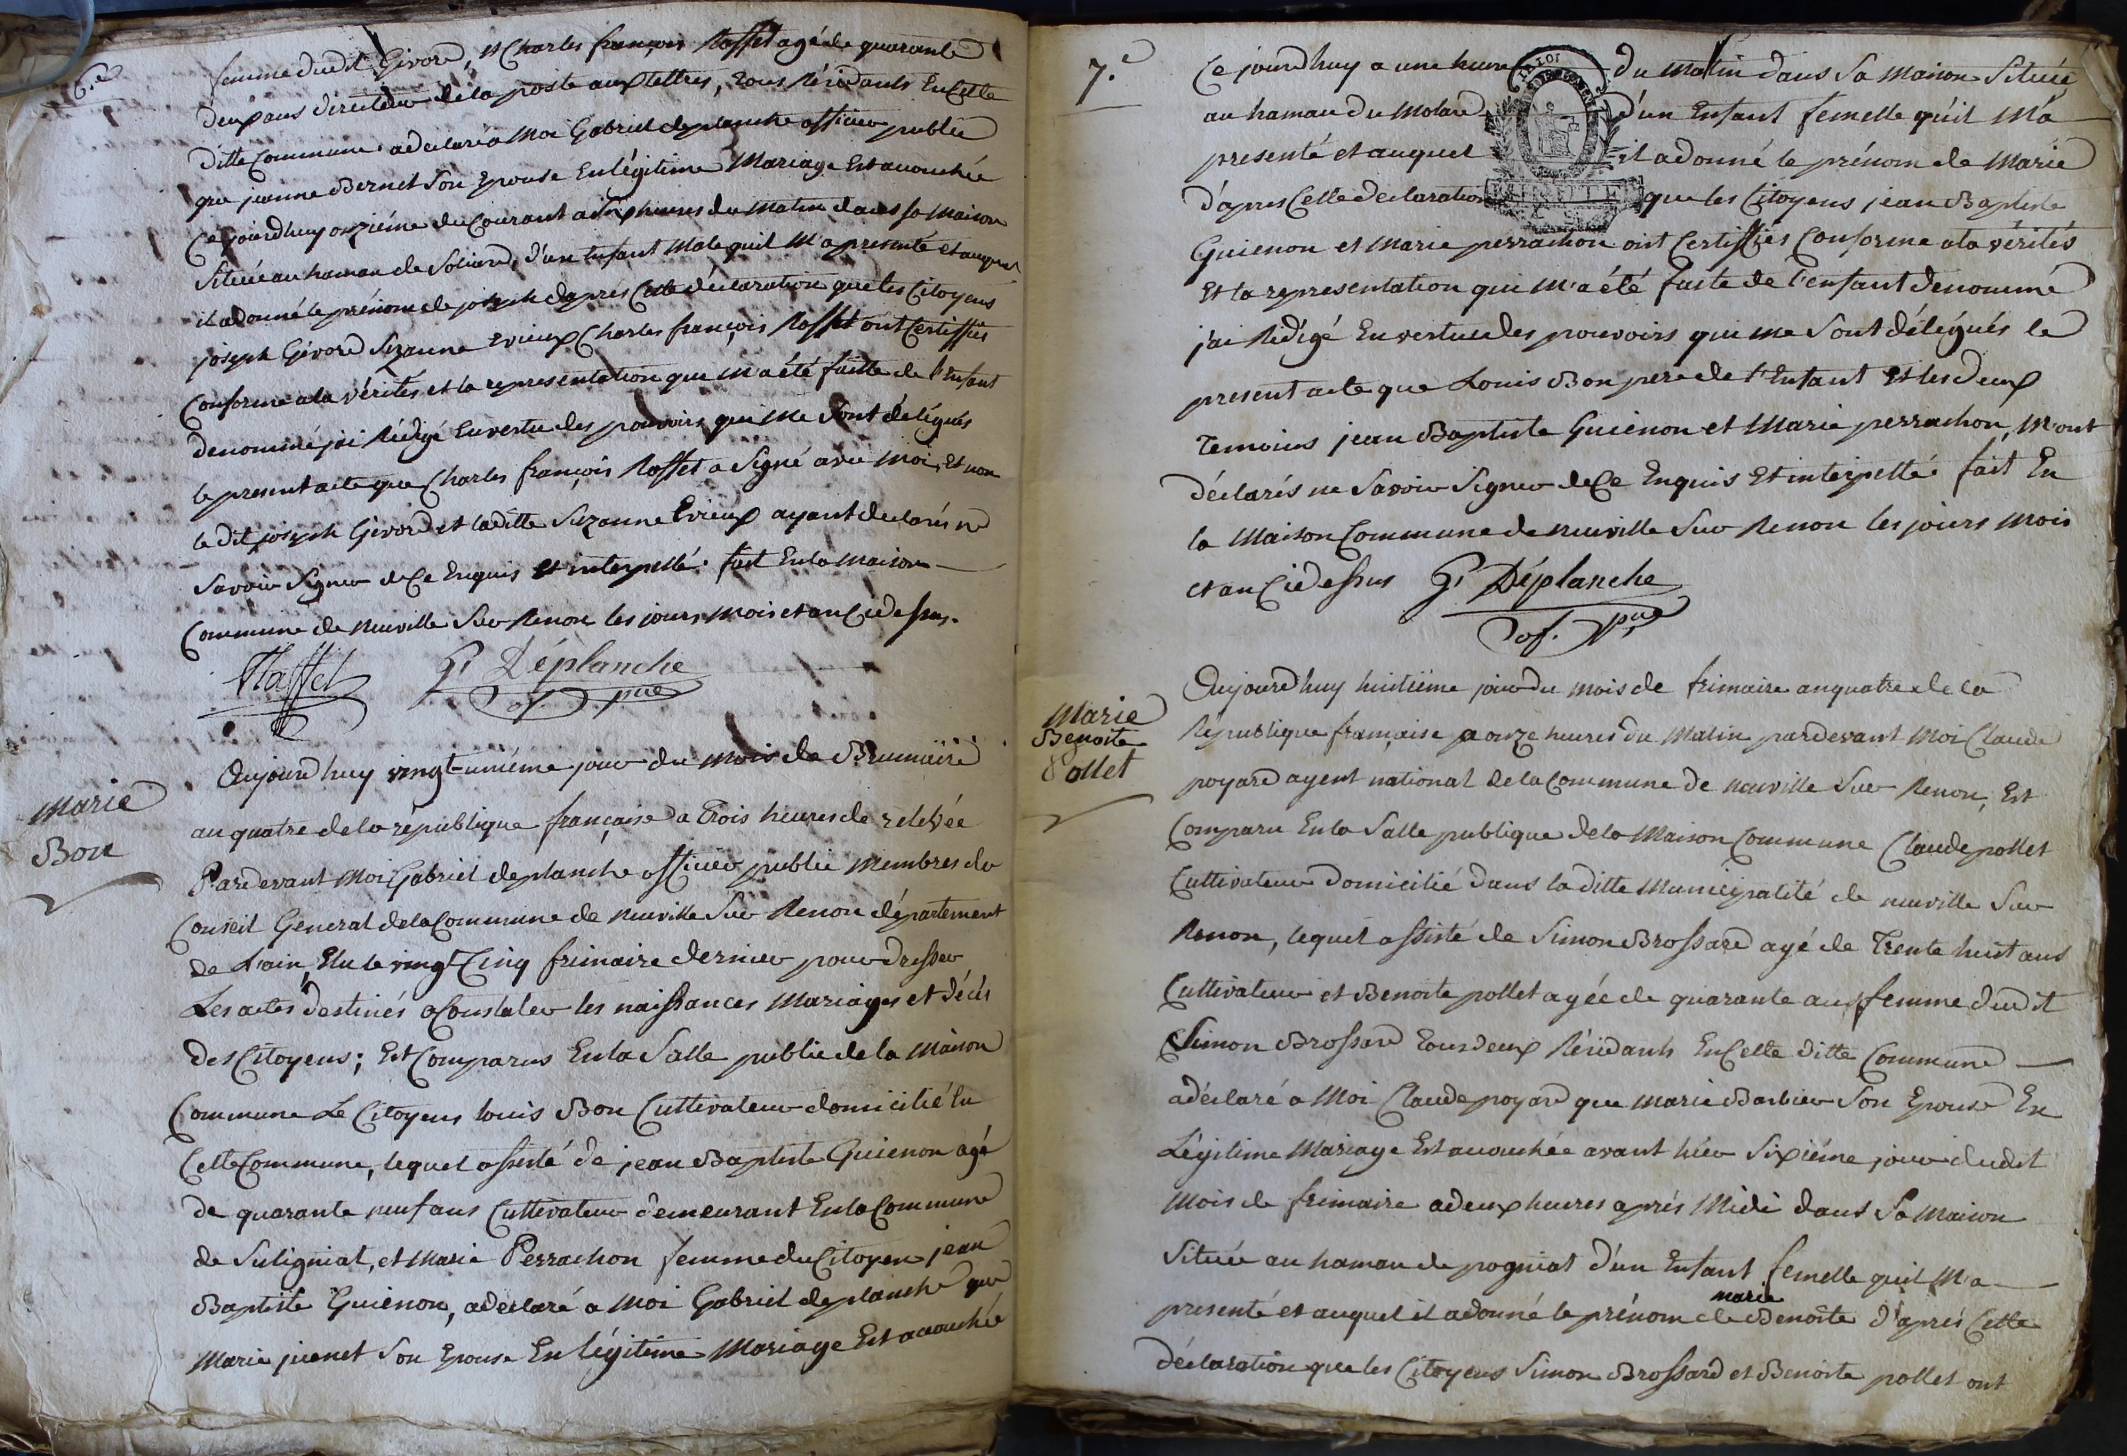 6.e
femme dudit Givord, et Charles françois Raffet agé de quarante
deux ans directeur de la poste aux lettres, tous Résidants En Cette
ditte Commune a declaré a Moi Gabriel deplanche officier public
que jeanne Bernet Son Epouse En légitime Mariage Est accouchée
Ce jourd'huy onziéme du Courant a Six heures du Matin dans sa Maison
Située au hamau de Soliard, d'un Enfant Male quil M'a presenté et auquel
il a donné le prénom de joseph daprès Cette déclaration que les Citoyens
joseph Givord Suzanne Evieux Charles françois Raffet ont Certiffiés
Conforme a la vérités et la representation qui m'a été faitte de l'Enfant
denommé j'ai Rédigé En vertu des pouvoirs qui me Sont délégués
le present acte que Charles françois Raffet a Signé avec Moi, Et non
le dit joseph Givord et laditte Suzanne Evieux ayant declarés ne
Savoir Signer de Ce Enquis et interpellé. fait En la Maison
Commune de neuville Sur Renon les jours Mois et an Cy dessus.
Raffet G. Déplanche
of. pue
Marie
Bon
Aujourd'huy vingt-uniéme jour du Mois de Brumaire
an quatre de la république française a Trois heures de relevée
Pardevant Moi Gabriel deplanche officier public Membres du
Conseil General de la Commune de neuville Sur Renon département
de L'ain, Elu le vingt Cinq frimaire dernier pour dresser
Les actes destinés a Constater les naissances Mariages et décès
des Citoyens; Est Comparus En la Salle public de la Maison
Commune Le Citoyens louis Bon Cultivateur domicilié En
Cette Commune, lequel assisté de jean Baptiste Guienon agé
de quarante neuf ans Cultivateur demeurant En la Commune
de Suligniat, et Marie Perrachon femme du Citoyen jean
Baptiste Guienon, a declaré a Moi Gabriel deplanche que
Marie juenet Son Epouse En légitime Mariage Est accouchée
7.e
Ce jourd'huy a une heure du Matin dans Sa Maison Située
LA LOI
au hamau du Molard d'un Enfant femelle quil M'a
presenté et auquel il a donné le prénom de Marie
d'apres Cette declaration que les Citoyens jean Baptiste
Guienon et Marie perrachon ont Certiffiés Conforme a la vérités
Et la representation qui M'a été faite de l'enfant denommé
j'ai Rédigé En vertu des pouvoirs qui me Sont délégués le
present acte que Louis Bon pere de l'Enfant et les deux
Temoins jean Baptiste Guienon et Marie perrachon, M'ont
déclarés ne Savoir Signer de Ce Enquis Et interpellé fait En
la Maison Commune de neuville Sur Renon les jours Mois
et an Cidessus G. Déplanche
of. pue
Marie
Benoite
Pollet
Aujourd'huy huitiéme jour du mois de frimaire an quatre de la
République française a onze heures du Matin pardevant Moi Claude
poyard agent national de la Commune de neuville Sur Renon, Est
Comparu En la Salle publique de la Maison Commune Claude pollet
Cultivateur domicilié dans la ditte Municipalité de neuville Sur
Renon, lequel assisté de Simon Brossard agé de Trente huit ans
Cultivateur et Benoite pollet agée de quarante ans femme dudit
Simon Brossard Tous deux Résidants En Cette ditte Commune
a déclaré a Moi Claude poyard que marie Barbier Son Epouse En
Légitime Mariage Est accouchée avant hier Sixiéme jour dudit
Mois de frimaire a deux heures après Midi dans Sa Maison
Située au hamau de pogniat d'un Enfant femelle quil M'a
marie
presenté et auquel il a donné le prénom de Benoite d'après Cette
déclaration que les Citoyens Simon Brossard et Benoite pollet ont